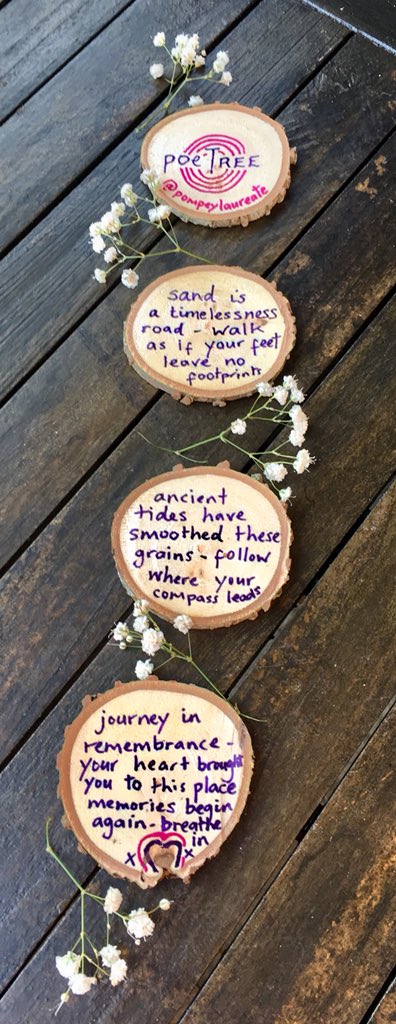 poeTREE
@pompeylaureate
sand is
a timelessness
road - walk
as if your feet
leave no
footprints
ancient
tides have
smoothed these
grains - follow
where your
compass leads
journey in
remembrance -
your heart brought
you to this place
memories begin
again - breathe
in
x x